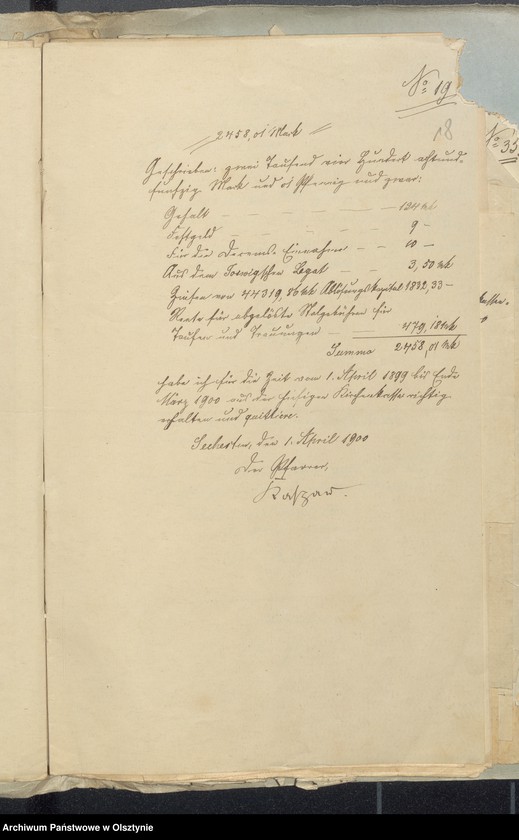 No 19
18
No 35
2458,01 Mark
Geschrieben: zwei Tausend vier Hundert achtund-
fünfzig Mark und 01 Pfennig und zwar:
Gehalt — — — — 124 Mk
Festgeld — — — — 9 —
Für die Decems-Einnahme — — 10 —
Aus dem Legat — — 3,50 Mk
Zinsen von 44319,86 Mk Ablösungskapital 1832,33 —
Rente für abgelöste Stolgebühren für
Taufen und Trauungen — 479,18 Mk
Summa 2458,01 Mk
habe ich für die Zeit vom 1. April 1899 bis Ende
März 1900 aus der hiesigen Kirchenkasse richtig
erhalten und quittiere.
Seehesten, den 1. April 1900
Der Pfarrer.
Archiwum Państwowe w Olsztynie